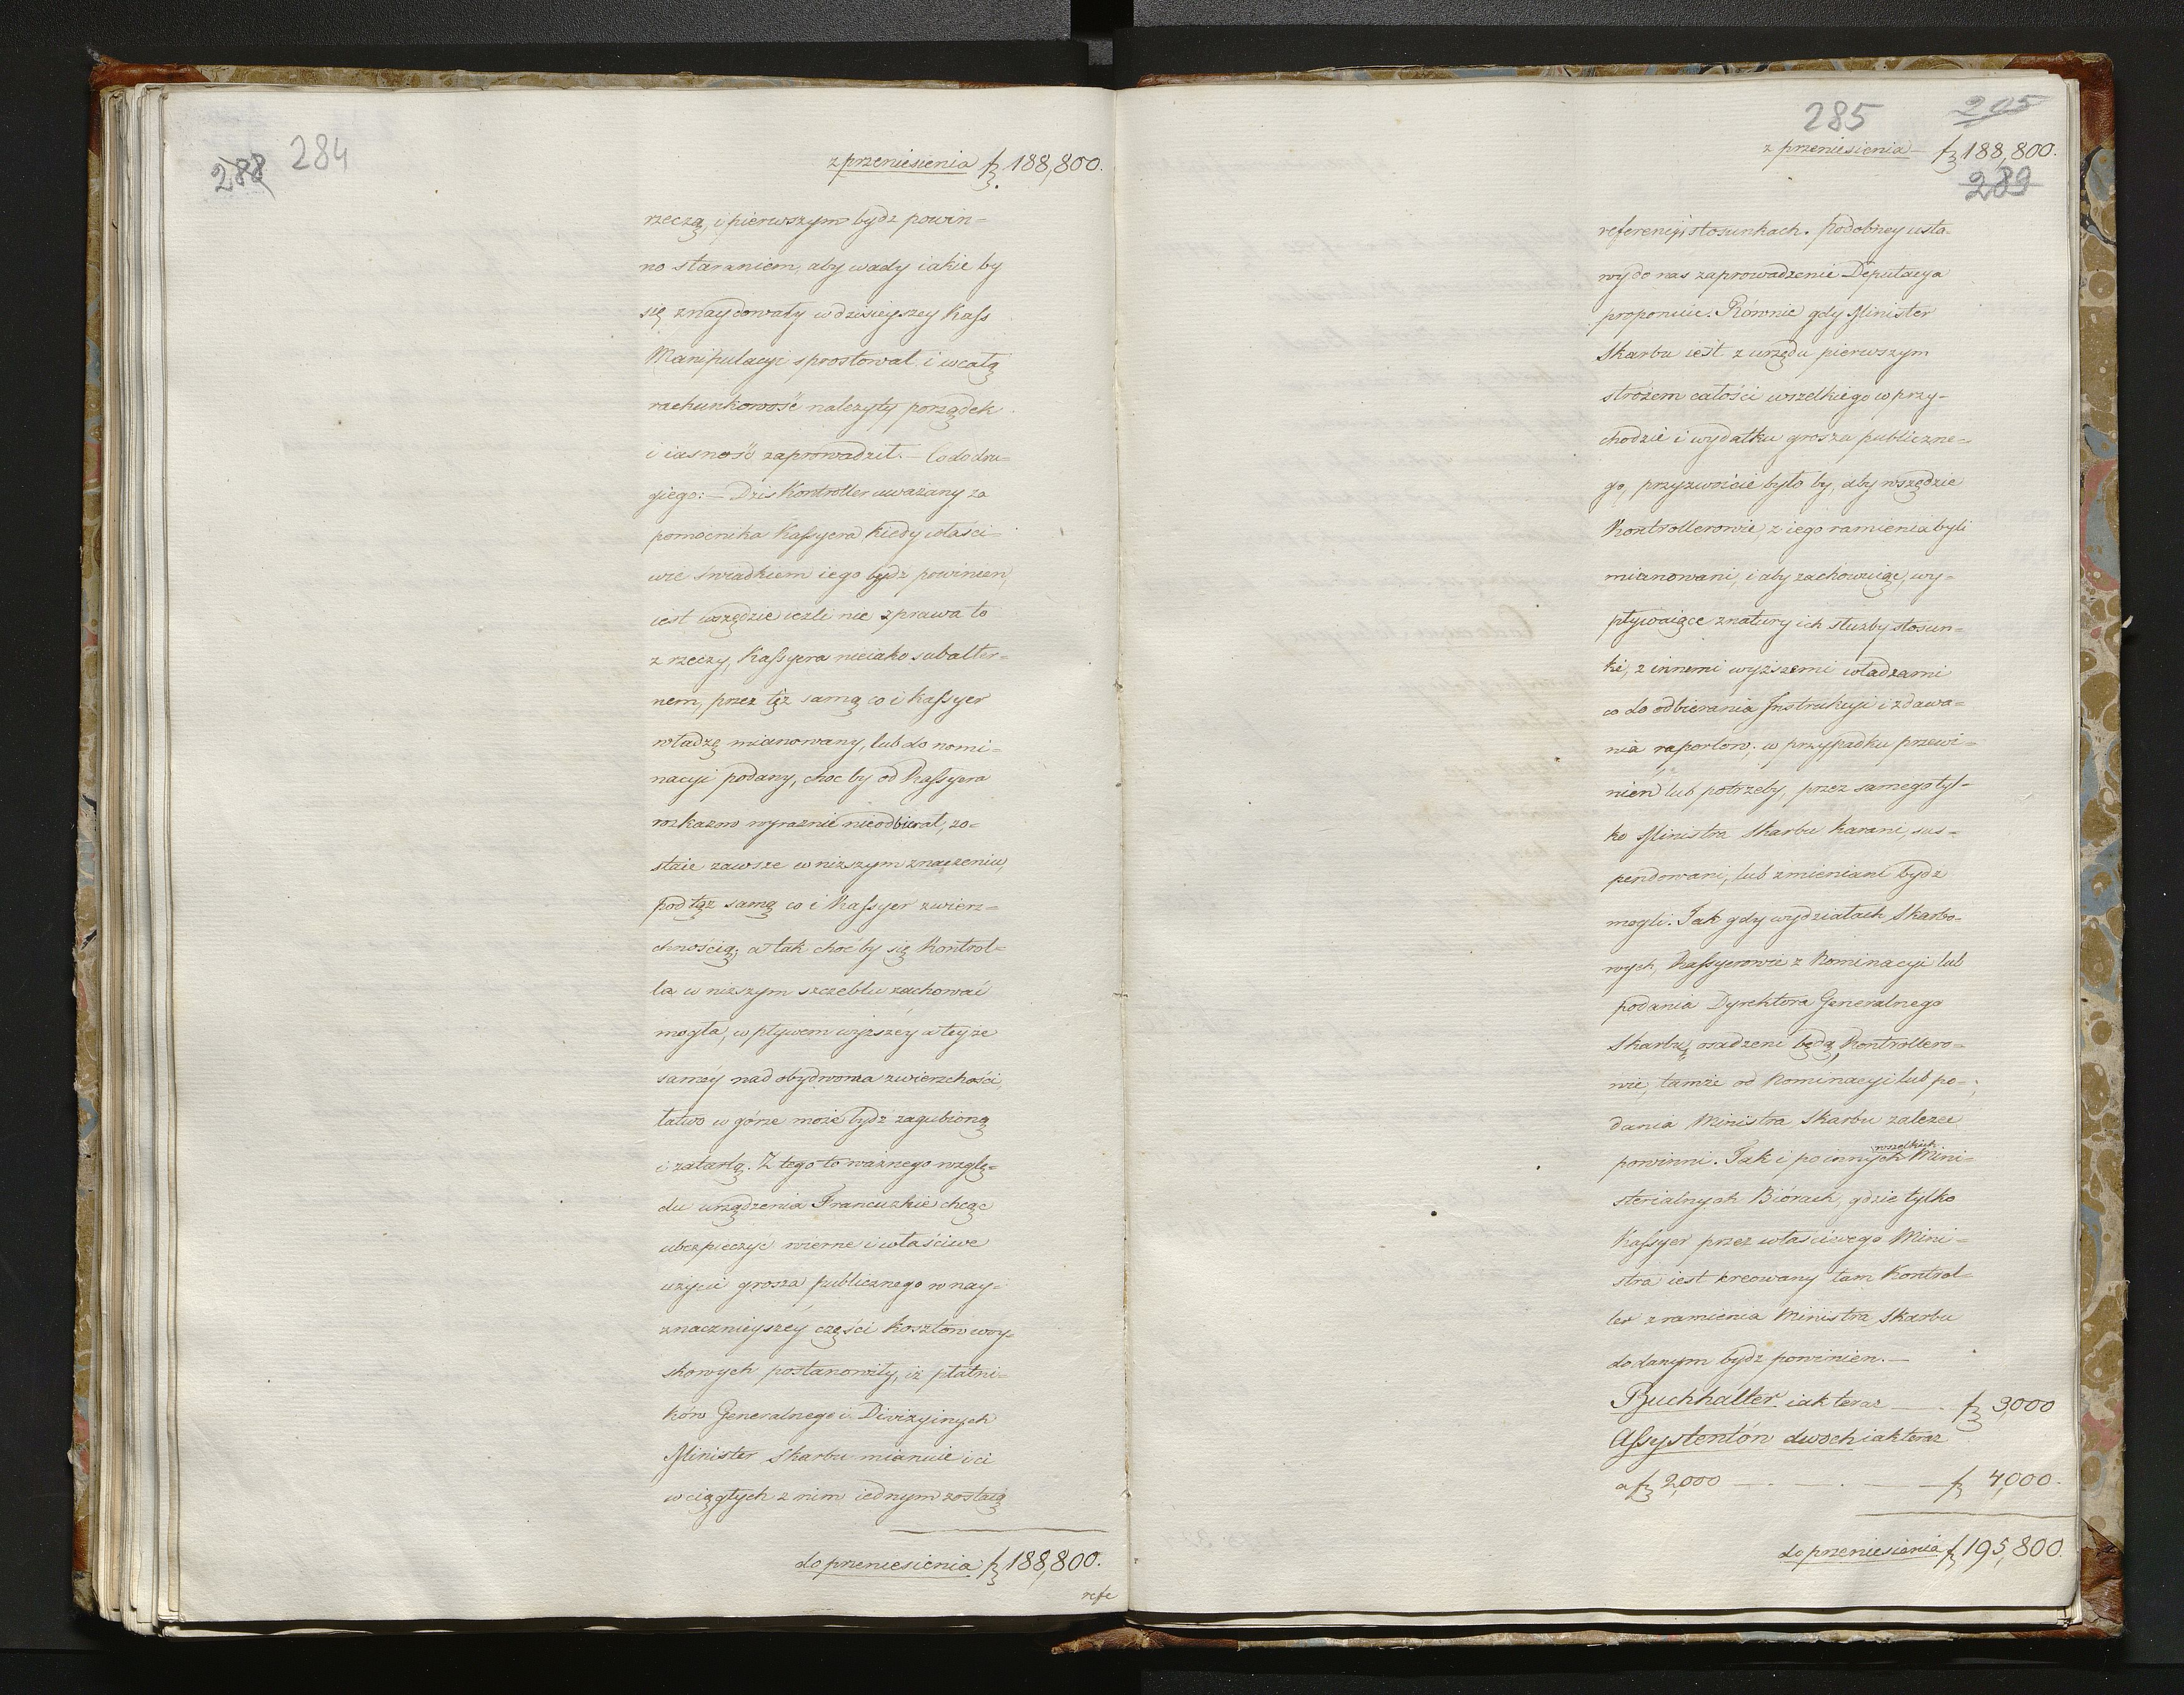 288 284
z przeniesienia f 188,800.
rzeczą, i pierwszym bydz powin=
no staraniem, aby wady iakie by
się znaydowały w dzisieyszey Kass
Manipulacyi sprostował i w całą
rachunkowość należyty porządek
i iasność zaprowadził. — Co do dru=
giego: — Dziś Kontroller uważany za
pomocnika Kassyera kiedy właści=
wie świadkiem iego bydź powinien,
iest wszędzie ieżli nie z prawa to
z rzeczy, Kassyera nieiako subalter=
nem, przez tęż samą co i Kassyer
władzę mianowany, lub do nomi=
nacyi podany, choc by od Kassyera
rozkazow wyraznie nieodbierał, zo=
staie zawsze w niższym znaczeniu,
pod tąż samą co i Kassyer zwierz=
chnością; a tak choćby się Kontrol=
la w niższym szczeblu zachować
mogła, wpływem wyższéy a teyże
saméy nad obydwoma zwierzchości,
łatwo w górze może bydz zagubioną
i zatartą. Z tego to ważnego wzglę=
du urządzenia Francuzkie chcąc
ubezpieczyć wierne i właściwe
użycie grosza publicznego w nay=
znacznieyszey części kosztow woy=
skowych postanowiły, iż płatni=
ków Generalnego i Divizyinych
Minister Skarbu mianuie i ci
w ciągłych z nim iednym zostaią
do przeniesienia f 188,800.
refe
285 205
z przeniesienia f 188,800.
289
referencyi stosunkach. Podobney usta=
wy do nas zaprowadzenie Deputacya
proponuie. Równie gdy Minister
Skarbu iest z urzędu pierwszym
stróżem całości wszelkiego w przy=
chodzie i wydatku grosza publiczne=
go, przyzwoicie było by, aby wszędzie
Kontrollerowie z iego ramienia byli
mianowani, i aby zachowuiąc, wy=
pływaiące z natury ich służby stosun=
ki, z innemi wyższemi władzami
co do odbierania Instrukcyi i zdawa=
nia raportow. w przypadku przewi=
nień lub potrzeby, przez samego tyl=
ko Ministra Skarbu karani, sus=
pendowani, lub zmieniani bydz
mogli. Jak gdy wydziałach Skarbo=
wych, Kassyerowie z Nominacyi lub
podania Dyrektora Generalnego
Skarbu, osadzeni będą, Kontrollero=
wie, tamże od Nominacyi lub po=
dania Ministra Skarbu zależec
powinni. Jak i po innych wszelkich Mini=
sterialnych Biórach, gdzie tylko
Kassyer przez właściwego Mini=
stra iest kreowany tam Kontrol=
ler z ramienia Ministra Skarbu
dodanym bydz powinien. —
Buchhalter iak teraz — . f 3,000
Assystentón dwoch iak teraz
a f 2,000 — . — . — f 4,000.
do przeniesienia f 195,800.